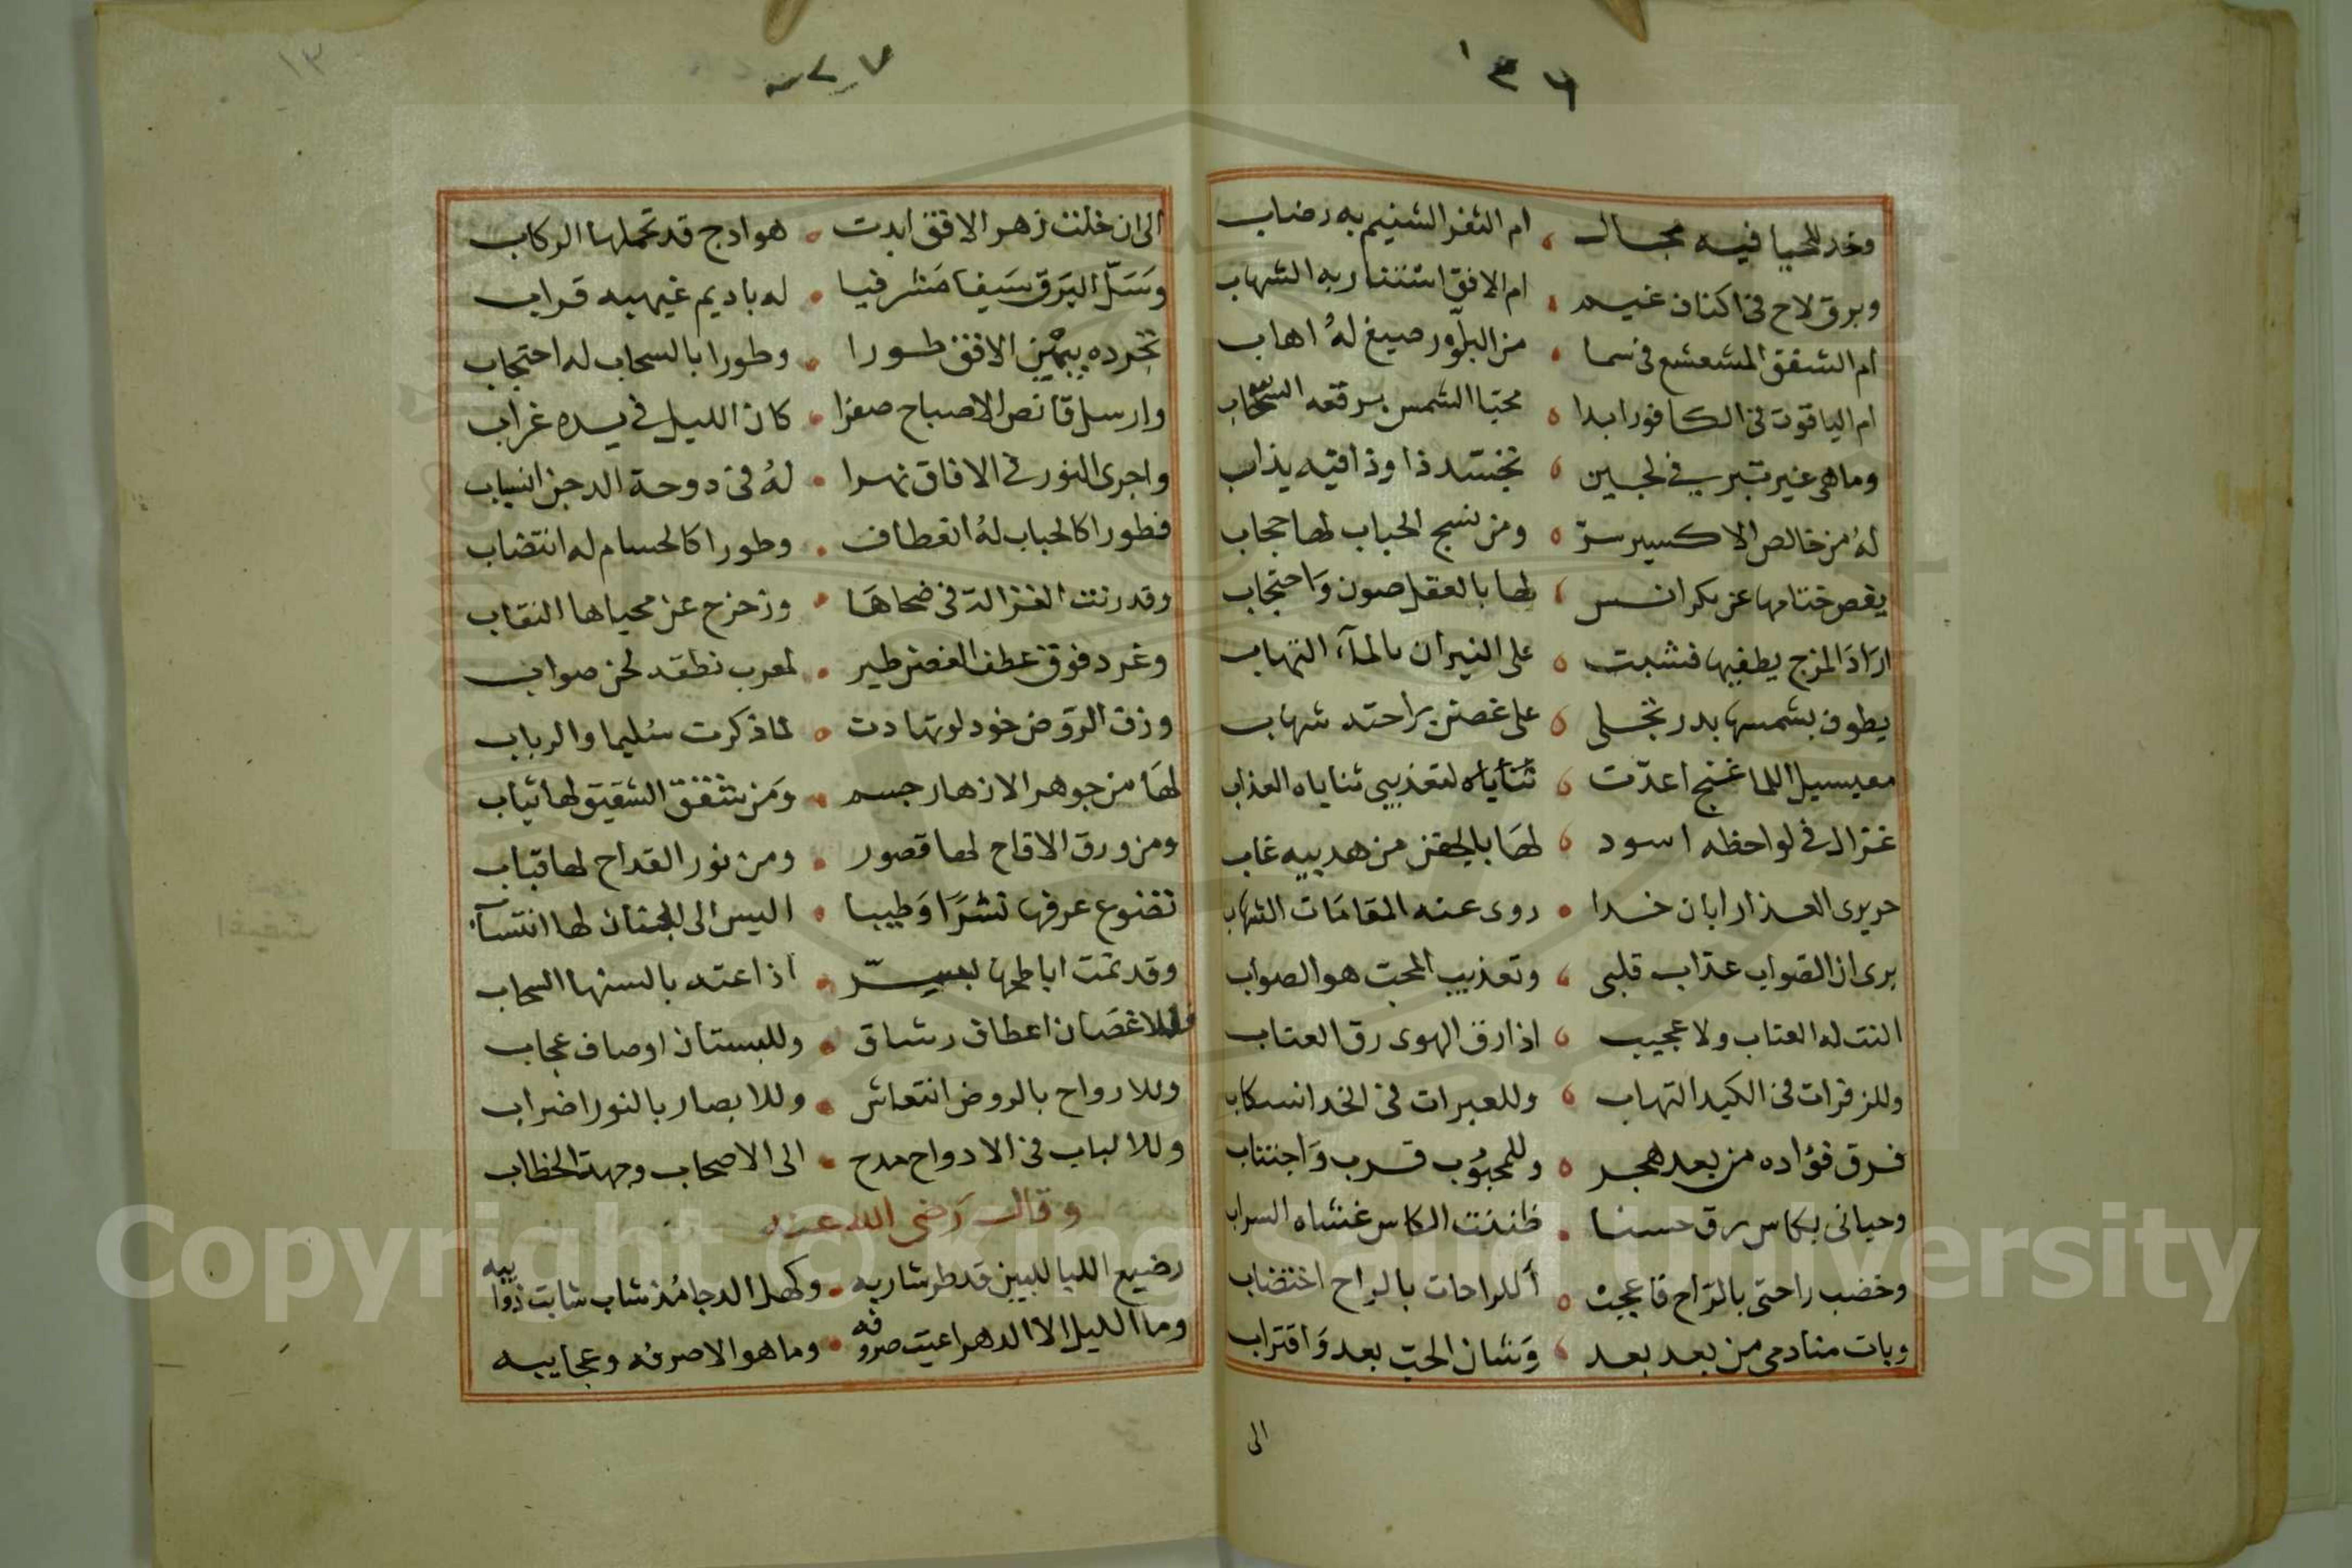 وخد للحيا فيه مجال ام الثغر الشنيم به رضاب
وبرق لاح فى اكناف غيم ام الافق استنار به الشهاب
ام الشفق المشعشع فى سما من البلور صيغ له اهاب
ام الياقوت فى الكافور ابدا محيا الشمس برقعه السحاب
وما هى غير تبر فى لجين تجسد ذا وذا فيه يذاب
له من خالص الاكسير سر ومن نسج الحباب لها حجاب
يفص ختامها عن بكر انس لها بالعقل صون واحتجاب
اراد المزج يطفيها فشبت على النيران بالماء التهاب
يطوف بشمسها بدر تجلى على غصن براحته شهاب
معيسيل اللما غنج اعدت ثناياه لتعذيبى ثناياه العذاب
غزال فى لواحظه اسود لها بالجفن من هدبيه غاب
حريرى العذار ابان خدا روى عنه المقامات الشهاب
يرى ان الصواب عذاب قلبى وتعذيب المحب هو الصواب
النت له العتاب ولا عجيب اذا رق الهوى رق العتاب
وللزفرات فى الكبد التهاب وللعبرات فى الخد انسكاب
فرق فؤاده من بعد هجر وللمحبوب قرب واجتناب
وحيانى بكاس رق حسنا ظننت الكاس غشاه السراب
وخضب راحتى بالراح فاعجب أللراحات بالراح اختضاب
وبات منادمى من بعد بعد وشان الحب بعد واقتراب
الى
الى ان خلت زهر الافق ابدت هوادج قد تحملها الركاب
وسل البرق سيفا مشرفيا له باديم غيهبه قراب
تجرده يمين الافق طورا وطورا بالسحاب له احتجاب
وارسل قانص الاصباح صقرا كان الليل فى يده غراب
واجرى النور فى الافاق نهرا له فى دوحة الدجن انسياب
فطورا كالحباب له انعطاف وطورا كالحسام له انتضاب
وقد رنت الغزالة فى ضحاها وزحزح عن محياها النقاب
وغرد فوق عطف الغصن طير لمعرب نطقه لحن صواب
وزف الروض خود لو تهادت لما ذكرت سليما والرباب
لها من جوهر الازهار جسم ومن شفق الشقيق لها ثياب
ومن ورق الاقاح لها قصور ومن نور القداح لها قباب
تضوع عرفها نشرا وطيبا اليس الى الجنان لها انتسآب
وقد نمت اباطحها بسر اذاعته بالسنها السحاب
فللاغصان اعطاف رشاق وللبستان اوصاف عجاب
وللارواح بالروض انتعاش وللابصار بالنور اضراب
وللالباب فى الادواح مدح الى الاصحاب وجهة الخطاب
وقال رضى الله عنه
رضيع الليالليين قد طر شاربه وكهل الدجا مذ شاب شابت ذوايبه
وما الليل الا الدهر اعيت صروفه وما هو الا صرفه وعجايبه
Copyright © King Saud University